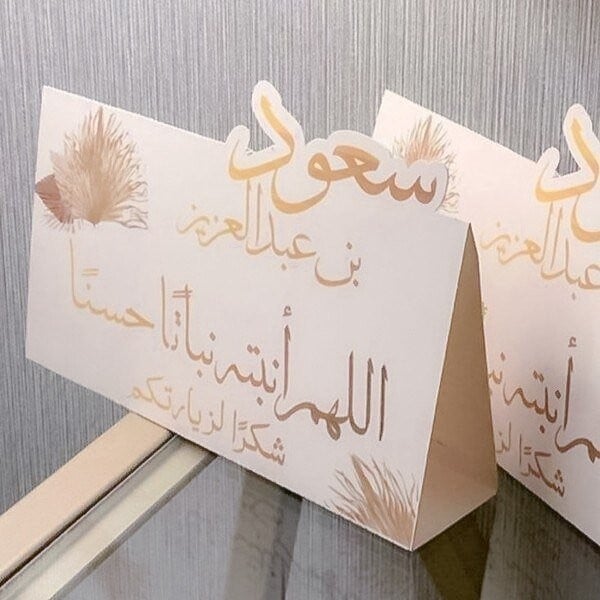 سعود
بن عبدالعزيز
اللهم أنبته نباتًا حسنًا
شكرًا لزيارتكم
د
عبدالعزيز
أنبته
شكرًا